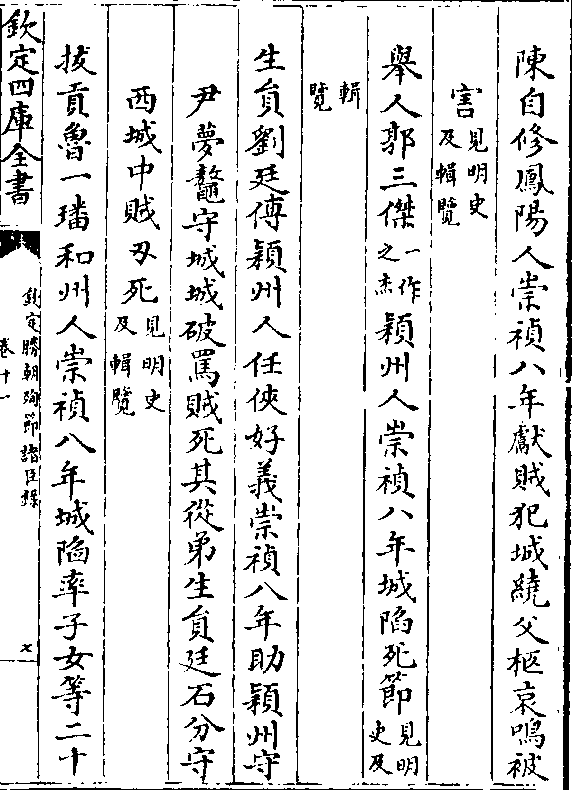 陳自修鳳陽人崇禎八年獻賊犯城繞父柩哀鳴被
害見明史及輯覽
舉人郭三傑一作之杰潁州人崇禎八年城陷死節見明史及
輯覽
生員劉廷傅潁州人任俠好義崇禎八年助潁州守
尹夢鼇守城城破罵賊死其從弟生員廷石分守
西城中賊刃死見明史及輯覽
拔貢魯一璠和州人崇禎八年城陷率子女等二十
欽定四庫全書
欽定勝朝殉節諸臣錄
卷十一
七